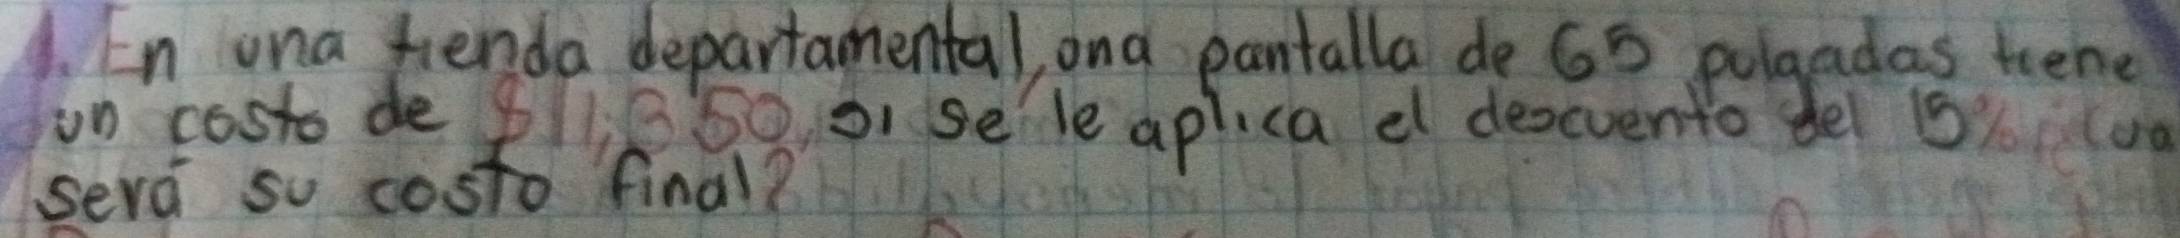 1. En una tienda departamental, una pantalla de 65 pulgadas tiene
un costo de $11,350, si se le aplica el descuento del 15% ¿Cua
será su costo final?